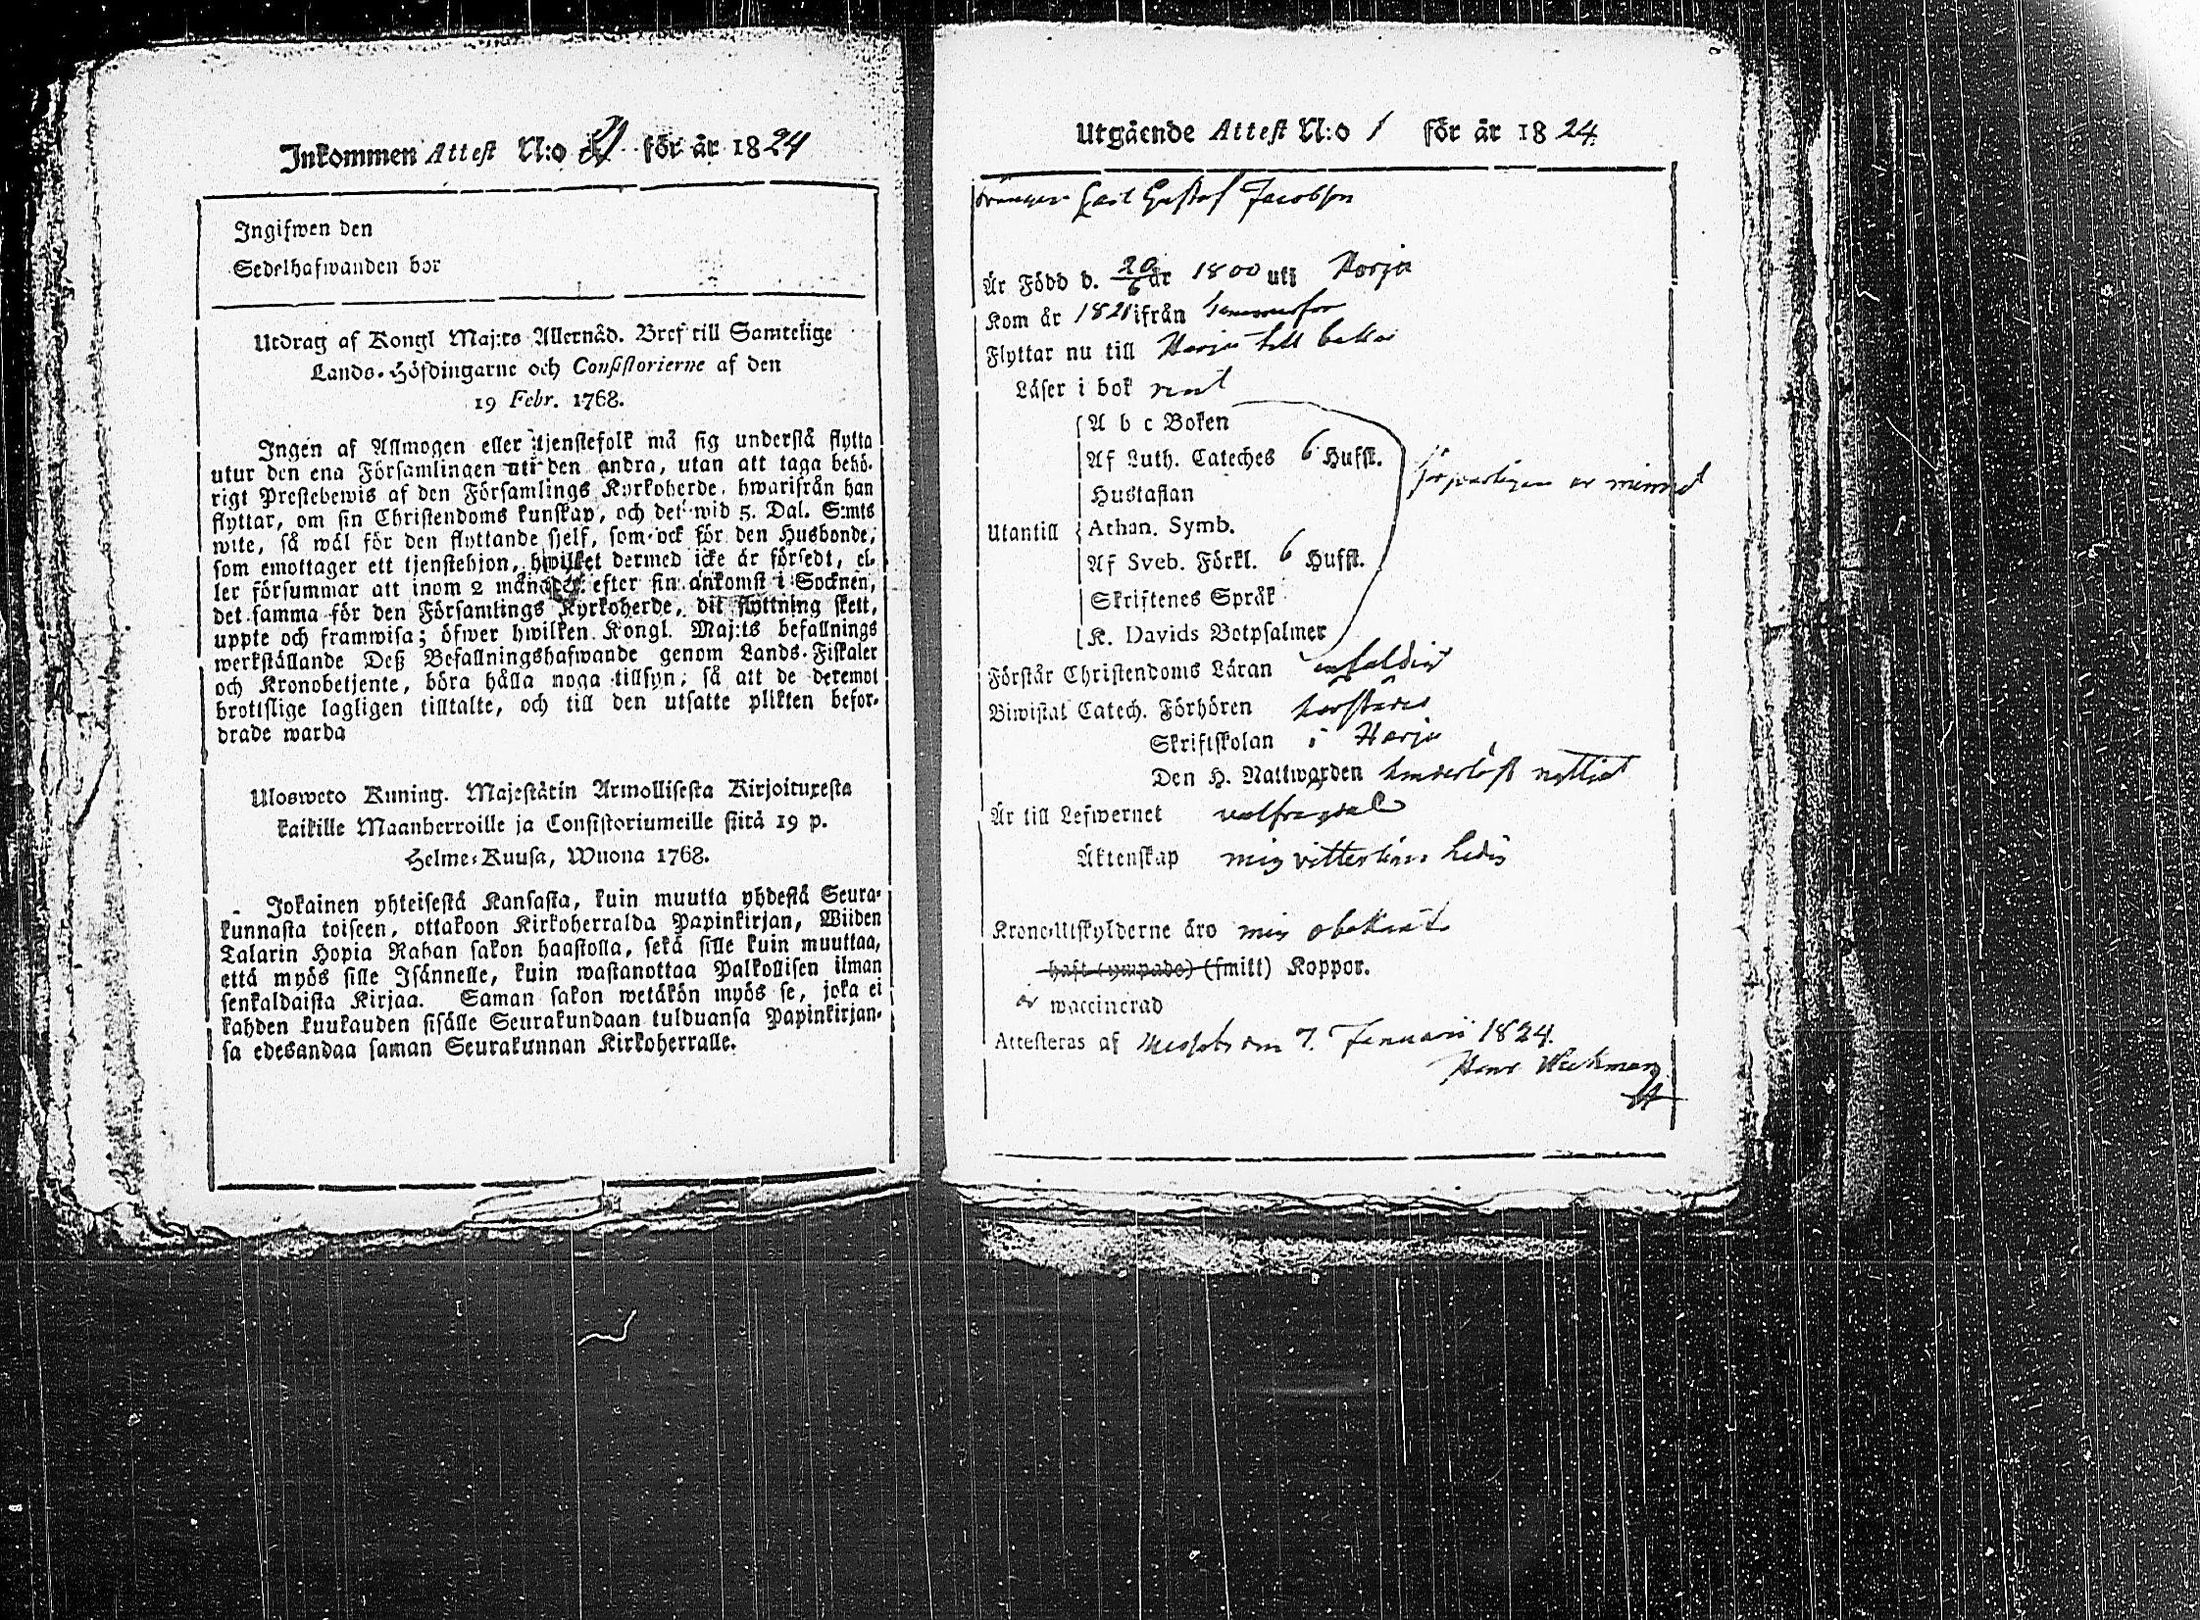 Inkommen Attest N:o 21 för år 1824
Ingifwen den
Sedelhafwanden bor
Utdrag af Kongl Maj:ts Allernåd. Bref till Samtelige
Lands-Höfdingarne och Consistorierne af den
19 Febr. 1768.
Ingen af Allmogen eller tjenstefolk må sig understå flytta
utur den ena Församlingen uti den andra, utan att taga behö-
rigt Prestebewis af den Församlings Kyrkoherde, hwarifrån han
flyttar, om sin Christendoms kunskap, och det wid 5. Dal. S:mts
wite, så wäl för den flyttande sjelf, som ock för den Husbonde,
som emottager ett tjenstehjon, hwilket dermed icke är försedt, el-
ler försummar att inom 2 månader efter sin ankomst i Socknen,
det samma för den Församlings Kyrkoherde, dit flyttning skett,
uppte och framwisa; öfwer hwilken Kongl. Maj:ts befallnings
werkställande Deß Befallningshafwande genom Lands-Fiskaler
och Kronobetjente, böra hålla noga tillsyn, så att de deremot
brottslige lagligen tilltalte, och till den utsatte plikten befor-
drade warda
Ulosweto Kuning. Majestätin Armollisesta Kirjoituxesta
kaikille Maanherroille ja Consistoriumeille siitä 19 p.
Helme-Kuusa, Wuona 1768.
Jokainen yhteisestä Kansasta, kuin muutta yhdestä Seura-
kunnasta toiseen, ottakoon Kirkoherralda Papinkirjan, Wiiden
Talarin Hopia Rahan sakon haastolla, sekä sille kuin muuttaa,
että myös sille Isännelle, kuin wastanottaa Palkollisen ilman
senkaldaista Kirjaa. Saman sakon wetäkön myös se, joka ei
kahden kuukauden sisälle Seurakundaan tulduansa Papinkirjan-
sa edesandaa saman Seurakunnan Kirkoherralle.
Utgående Attest N:o 1 för år 1824.
Drängen Carl Gustaf Jacobsson
Är Född d. 20/6 år 1800 uti Harju
Kom år 1821 ifrån
Flyttar nu till Harju till baka
Läser i bok rent
A b c Boken
Af Luth. Cateches 6 Hufst.
Hustaflan
Utantill Athan. Symb.
Af Sveb. Förkl. 6 Hufst.
Skriftenes Språk
K. Davids Botpsalmer
Förstår Christendoms Läran enfaldigt
Biwistat Catech. Förhören
Skriftskolan i Harju
Den H. Nattwarden hinderlöst nyttjat
Är till Lefwernet välfrejdad
Äktenskap mig vitterligen ledig
Krono-Utskylderne äro mig obekant
haft (ympade) (smitt) Koppor.
är waccinerad
Attesteras af Messuby den 7. Januarii 1824.
Henr Weckman